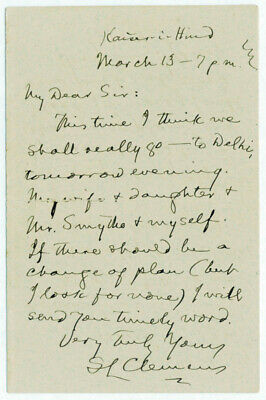 Kaiser-i-Hind
March 13 – 7 p.m.
My Dear Sir:
This time I think we
shall really go — to Delhi,
tomorrow evening.
My wife & daughter &
Mr. Smythe & myself.
If there should be a
change of plan (but
I look for none) I will
send you timely word.
Very Truly Yours
SL Clemens